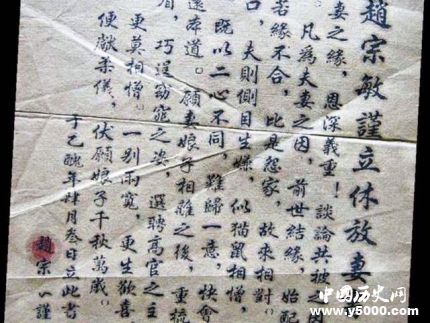 趙宗敏謹立休放妻
妻之緣，恩深義重！談論共被之
。凡為夫妻之因，前世結緣，始配
若緣不合，比是怨家，故來相對。
口，夫則側目生嫌，似貓鼠相憎，
既以二心不同，難歸一意，快會
本道。願妻娘子相離之後，重梳
眉，巧逞窈窕之姿，選聘高官之主
更莫相憎。一別兩寬，更生歡喜
便獻柔儀，伏願娘子千秋萬歲。
于乙醜年肆月叁日立此書
趙宗謹
中国历史网
www.y5000.com